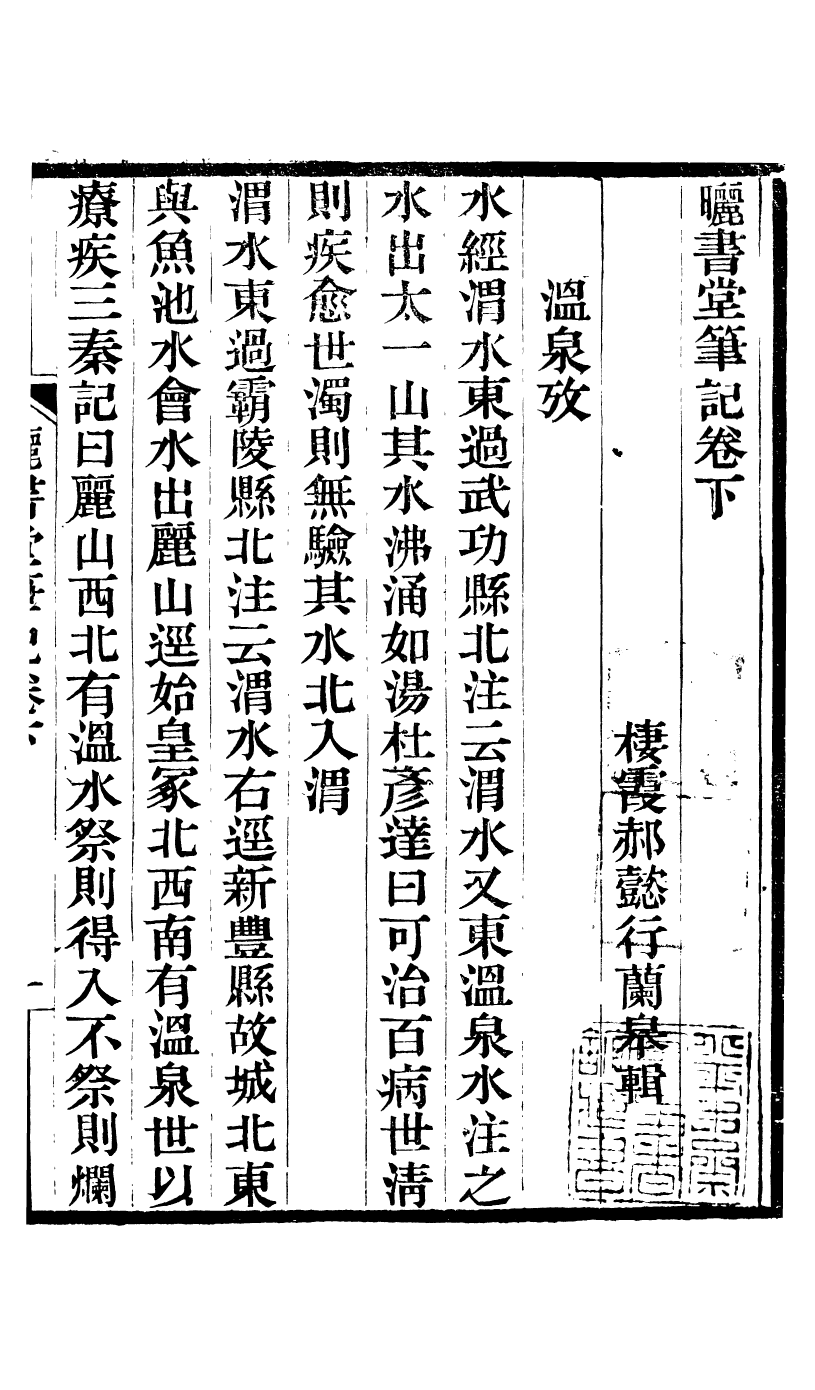 曬書堂筆記卷下
棲霞郝懿行蘭皋輯
溫泉攷
水經渭水東過武功縣北注云渭水又東溫泉水注之
水出太一山其水沸涌如湯杜彥達曰可治百病世清
則疾愈世濁則無驗其水北入渭
渭水東過霸陵縣北注云渭水右逕新豐縣故城北東
與魚池水會水出麗山逕始皇冢北西南有溫泉世以
療疾三秦記曰麗山西北有溫水祭則得入不祭則爛